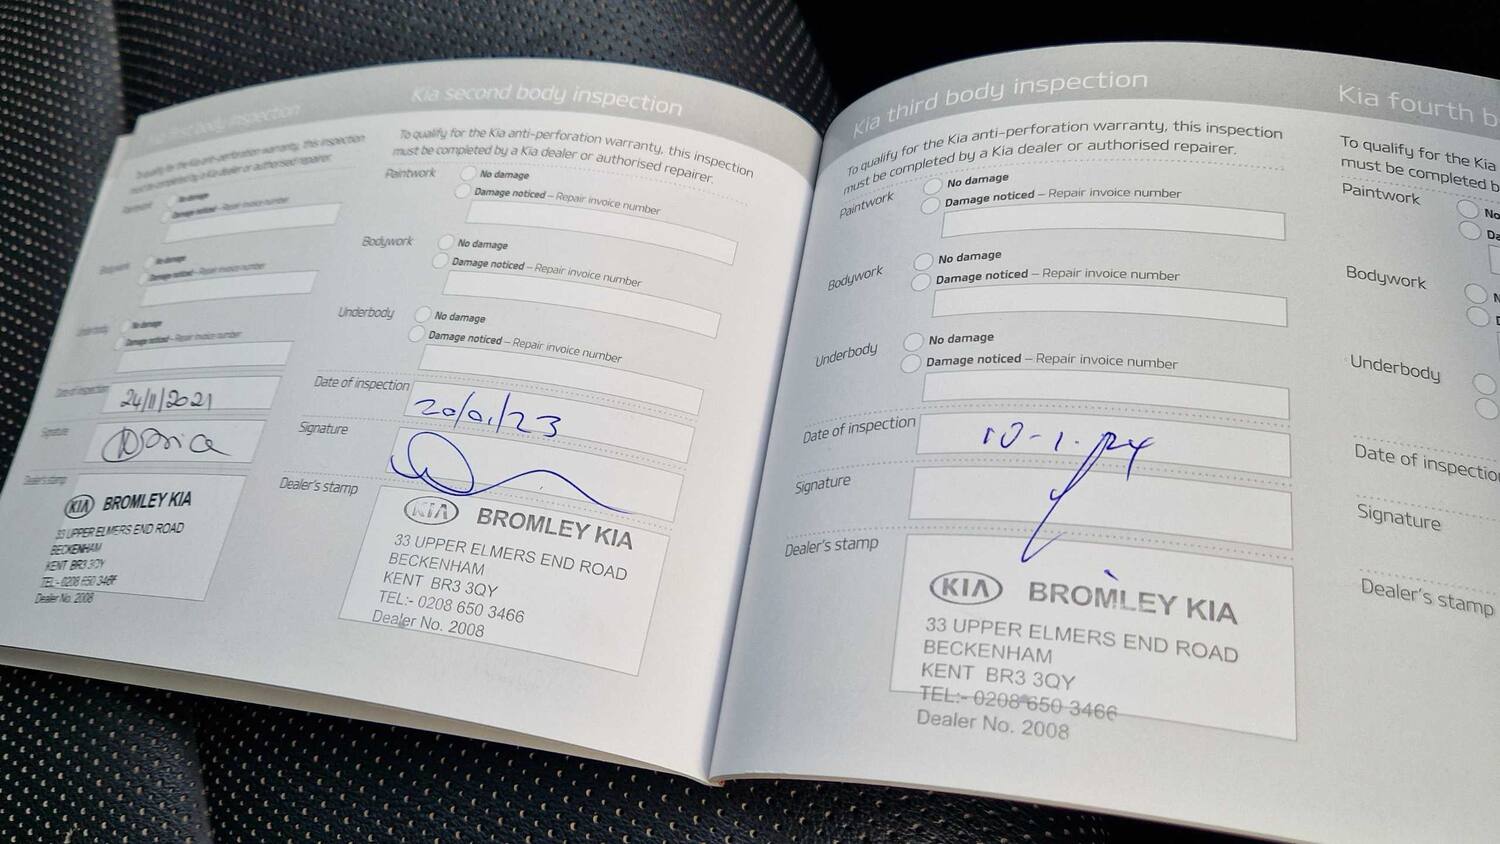 first body inspection
To qualify for the Kia anti-perforation warranty, this inspection
must be completed by a Kia dealer or authorised repairer.
Paintwork
No damage
Damage noticed – Repair invoice number
Bodywork
No damage
Damage noticed – Repair invoice number
Underbody
No damage
Damage noticed – Repair invoice number
Date of inspection
24/11/2021
Signature
Dealer's stamp
KIA BROMLEY KIA
33 UPPER ELMERS END ROAD
BECKENHAM
KENT BR3 3QY
TEL:- 0208 650 3466
Dealer No. 2008
Kia second body inspection
To qualify for the Kia anti-perforation warranty, this inspection
must be completed by a Kia dealer or authorised repairer.
Paintwork
No damage
Damage noticed – Repair invoice number
Bodywork
No damage
Damage noticed – Repair invoice number
Underbody
No damage
Damage noticed – Repair invoice number
Date of inspection
20/01/23
Signature
Dealer's stamp
KIA BROMLEY KIA
33 UPPER ELMERS END ROAD
BECKENHAM
KENT BR3 3QY
TEL:- 0208 650 3466
Dealer No. 2008
Kia third body inspection
To qualify for the Kia anti-perforation warranty, this inspection
must be completed by a Kia dealer or authorised repairer.
Paintwork
No damage
Damage noticed – Repair invoice number
Bodywork
No damage
Damage noticed – Repair invoice number
Underbody
No damage
Damage noticed – Repair invoice number
Date of inspection
10-1-24
Signature
Dealer's stamp
KIA BROMLEY KIA
33 UPPER ELMERS END ROAD
BECKENHAM
KENT BR3 3QY
TEL:- 0208 650 3466
Dealer No. 2008
Kia fourth b
To qualify for the Kia
must be completed b
Paintwork
No
Da
Bodywork
Underbody
Date of inspectio
Signature
Dealer's stamp